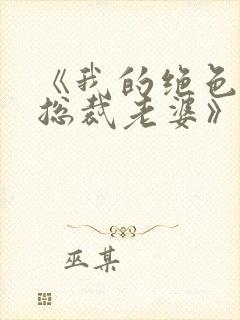 《我的绝色
总裁老婆》
巫某